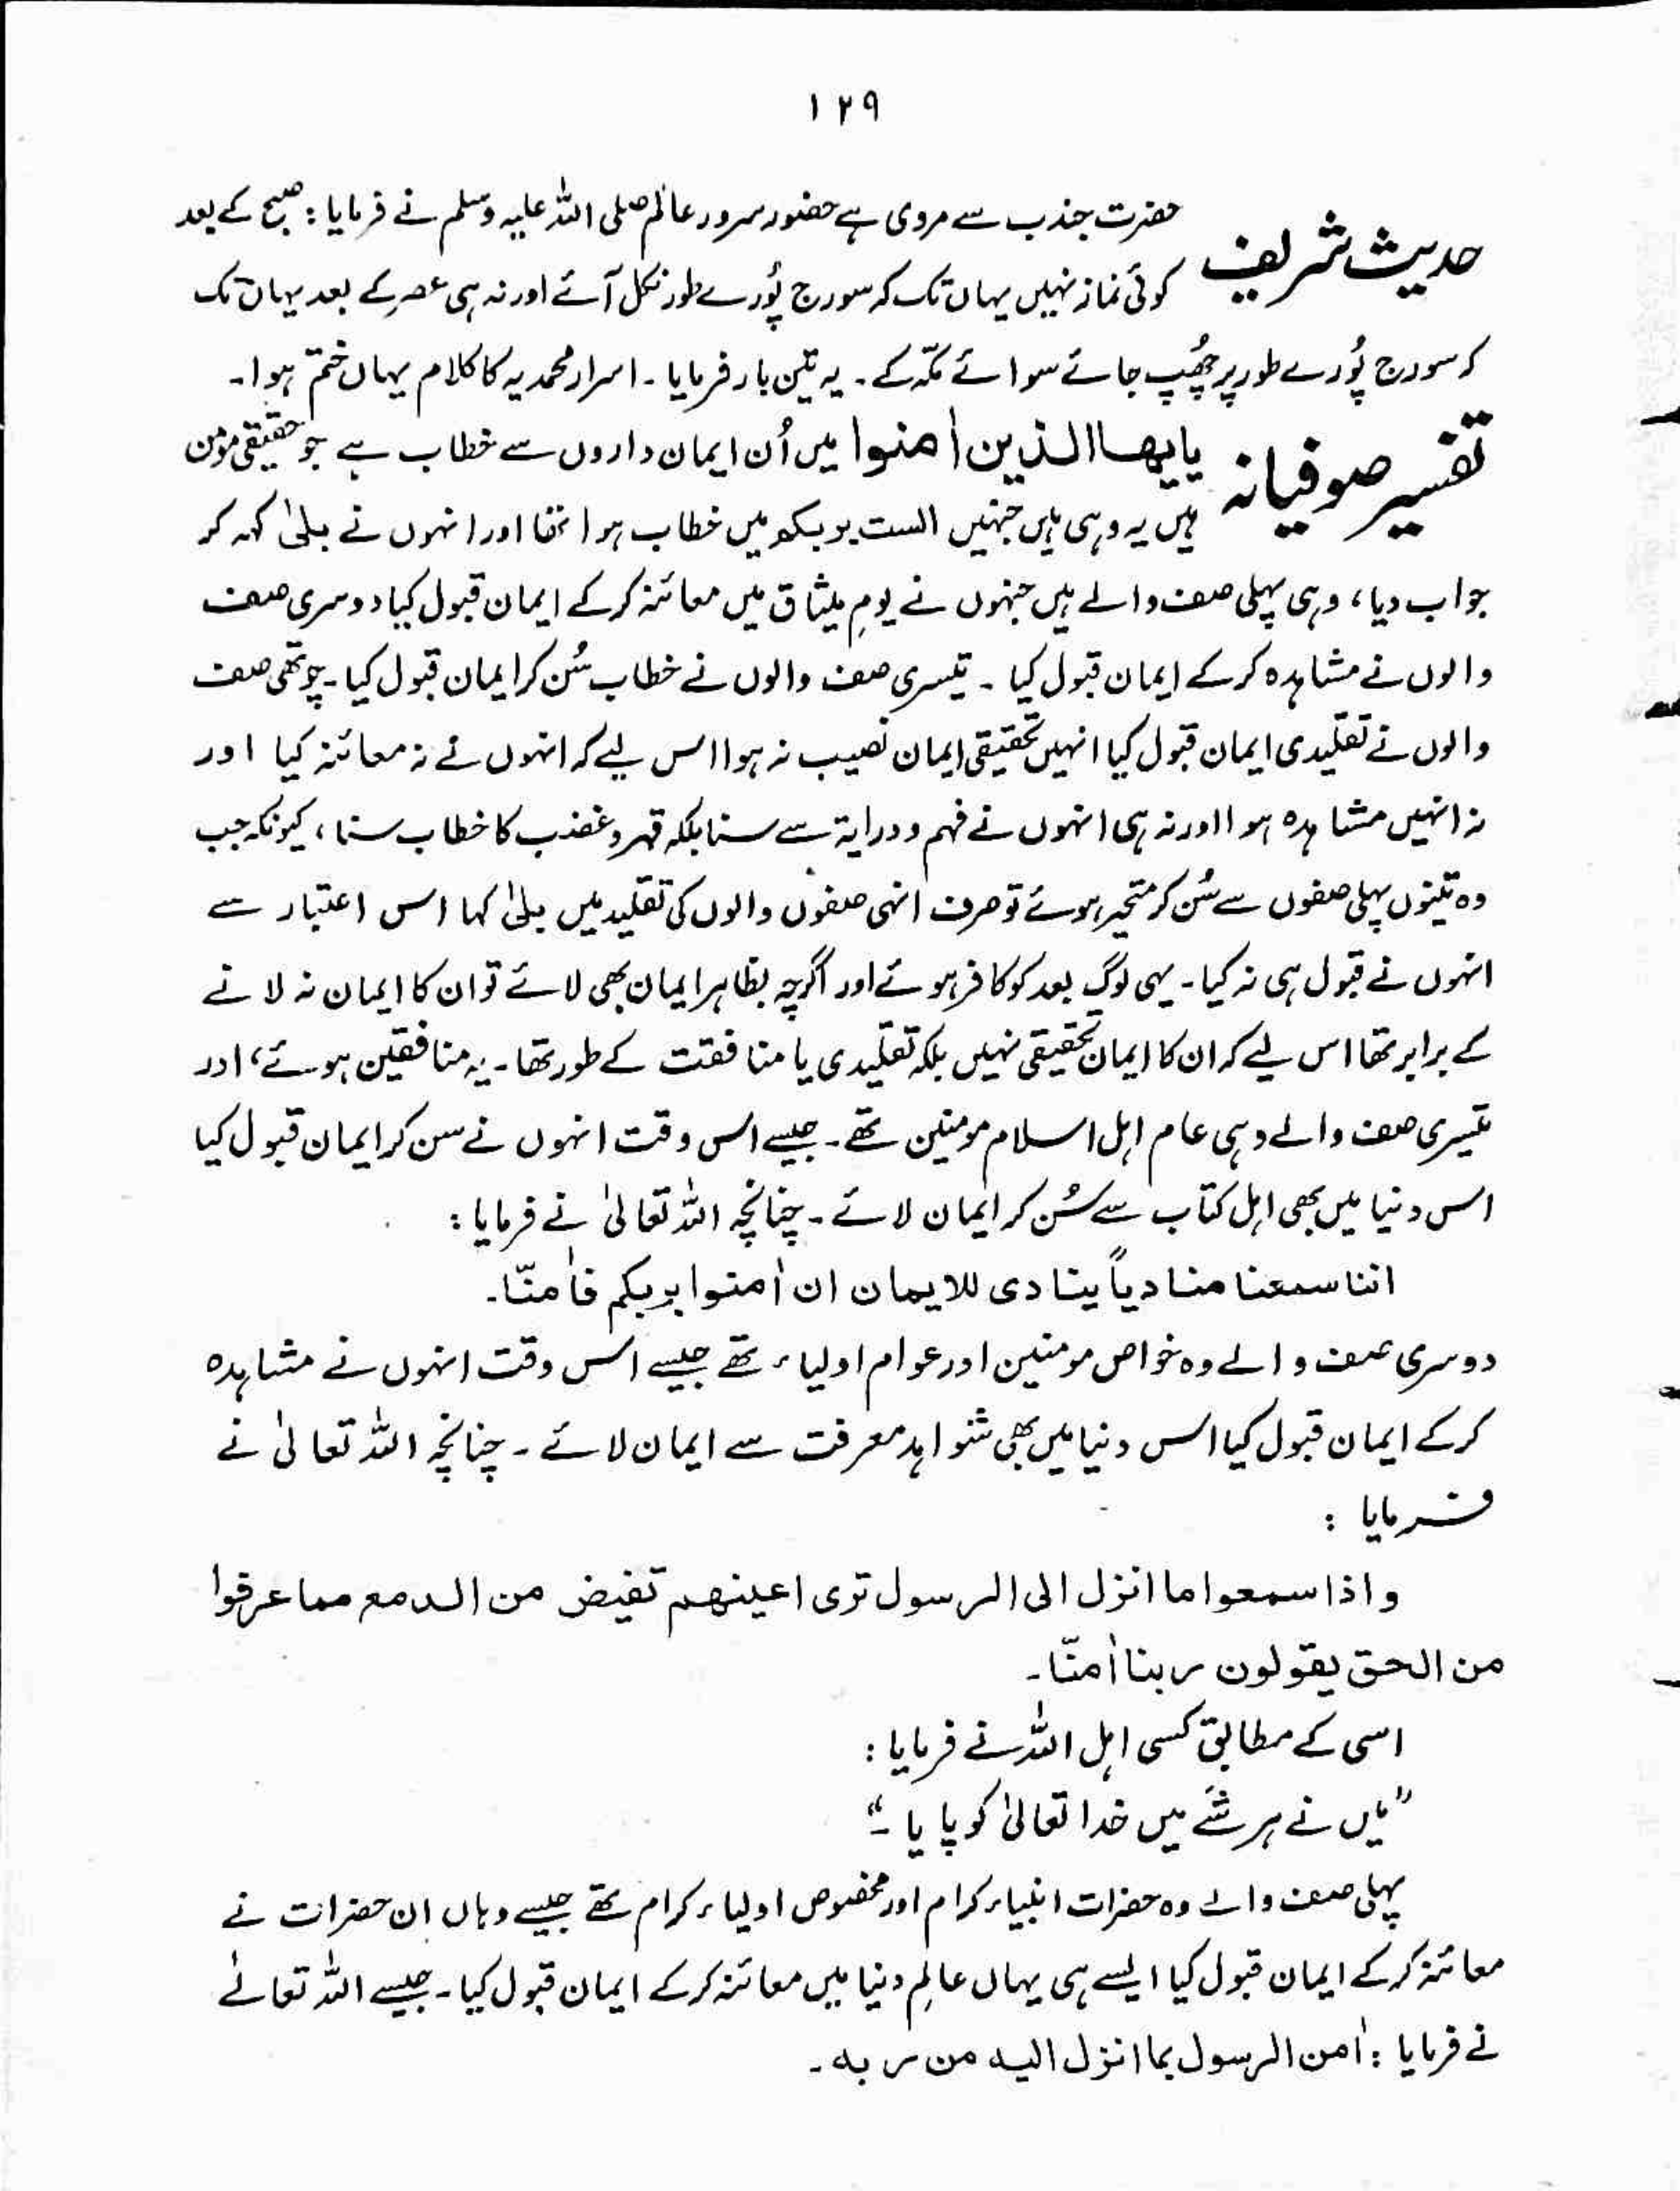 ۱۲۹
حدیث شریف حضرت جندب سے مروی ہے حضور سرور عالم صلی اللہ علیہ وسلم نے فرمایا : صبح کے بعد
کوئی نماز نہیں یہاں تک کہ سورج پُورے طور نکل آئے اور نہ ہی عصر کے بعد یہاں تک
کہ سورج پُورے طور پر چُھپ جائے سوائے مکّہ کے ۔ یہ تین بار فرمایا ۔ اسرار محمدیہ کا کلام یہاں ختم ہوا۔
تفسیر صوفیانہ یایھا الذین اٰمنوا میں اُن ایمان داروں سے خطاب ہے جو حقیقی مومن
ہیں یہ وہی ہیں جنہیں الست بربکم میں خطاب ہوا تھا اور انہوں نے بلیٰ کہہ کر
جواب دیا ، وہی پہلی صف والے ہیں جنہوں نے یومِ میثاق میں معائنہ کر کے ایمان قبول کیا دوسری صف
والوں نے مشاہدہ کر کے ایمان قبول کیا ۔ تیسری صف والوں نے خطاب سُن کر ایمان قبول کیا ۔ چوتھی صف
والوں نے تقلیدی ایمان قبول کیا انہیں تحقیقی ایمان نصیب نہ ہوا اس لیے کہ انہوں نے نہ معائنہ کیا اور
نہ انہیں مشاہدہ ہوا اور نہ ہی انہوں نے فہم و درایۃ سے سنا بلکہ قہر و غضب کا خطاب سنا ، کیونکہ جب
وہ تینوں پہلی صفوں سے سُن کر متحیر ہوئے تو صرف انہی صفوں والوں کی تقلید میں بلیٰ کہا اس اعتبار سے
انہوں نے قبول ہی نہ کیا ۔ یہی لوگ بعد کو کافر ہوئے اور اگرچہ بظاہر ایمان بھی لائے تو ان کا ایمان نہ لانے
کے برابر تھا اس لیے کہ ان کا ایمان تحقیقی نہیں بلکہ تقلیدی یا منافقت کے طور تھا ۔ یہ منافقین ہوئے ، اور
تیسری صف والے وہی عام اہل اسلام مومنین تھے ۔ جیسے اس وقت انہوں نے سن کر ایمان قبول کیا
اس دنیا میں بھی اہل کتاب سے سُن کر ایمان لائے ۔ چنانچہ اللہ تعالیٰ نے فرمایا :
اننا سمعنا منادیاً ینادی للایمان ان اٰمنوا بربکم فاٰمنّا۔
دوسری صف والے وہ خواص مومنین اور عوام اولیاء تھے جیسے اس وقت انہوں نے مشاہدہ
کر کے ایمان قبول کیا اس دنیا میں بھی شواہد معرفت سے ایمان لائے ۔ چنانچہ اللہ تعالیٰ نے
فرمایا :
و اذا سمعوا ما انزل الی الرسول تری اعینھم تفیض من الدمع مما عرفوا
من الحق یقولون ربنا اٰمنّا۔
اسی کے مطابق کسی اہل اللہ نے فرمایا :
”میں نے ہر شَے میں خدا تعالیٰ کو پایا ۔“
پہلی صف والے وہ حضرات انبیاء کرام اور مخصوص اولیاء کرام تھے جیسے وہاں ان حضرات نے
معائنہ کر کے ایمان قبول کیا ایسے ہی یہاں عالمِ دنیا میں معائنہ کر کے ایمان قبول کیا ۔ جیسے اللہ تعالےٰ
نے فرمایا : اٰمن الرسول بما انزل الیہ من ربہ ۔